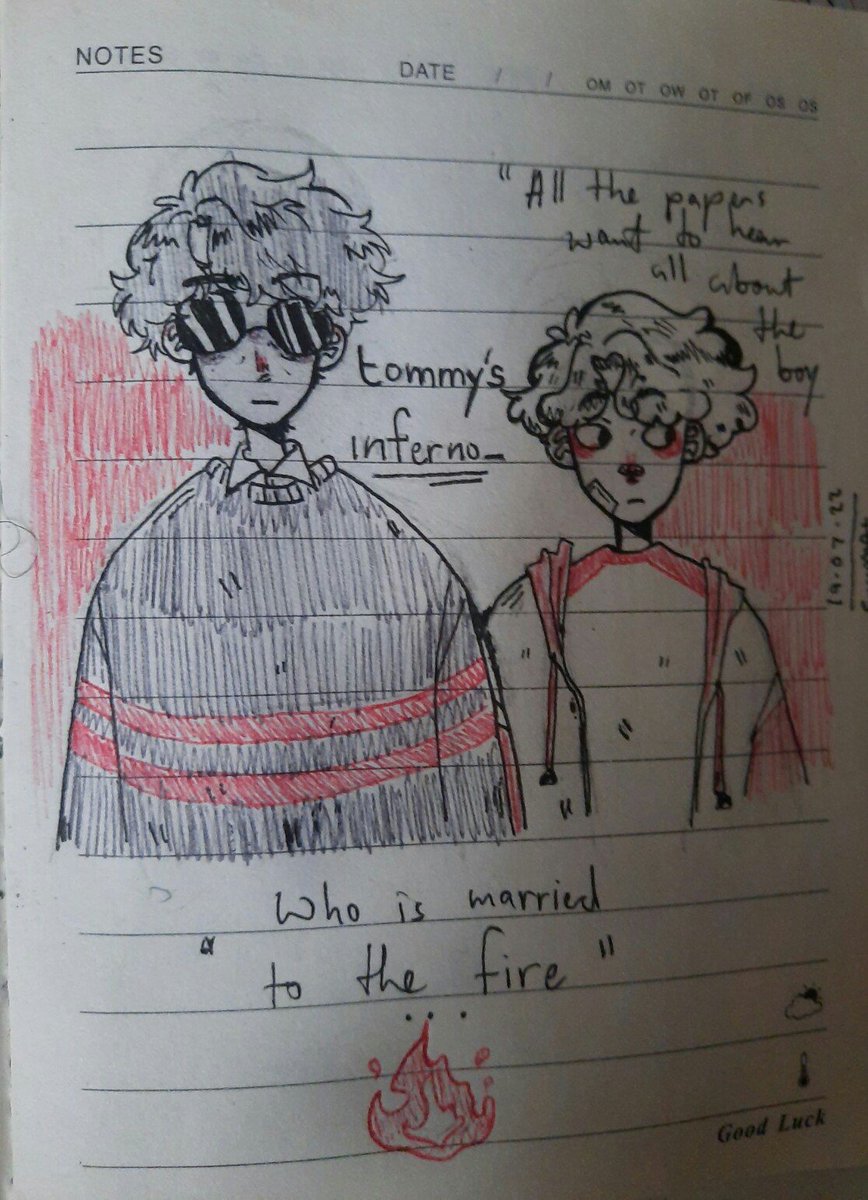 NOTES
DATE / / OM OT OW OT OF OS OS
"All the papers
want to hear
all about
the
boy
tommy's
inferno_
19.07.22
who is married
" to the fire"
...
Good Luck